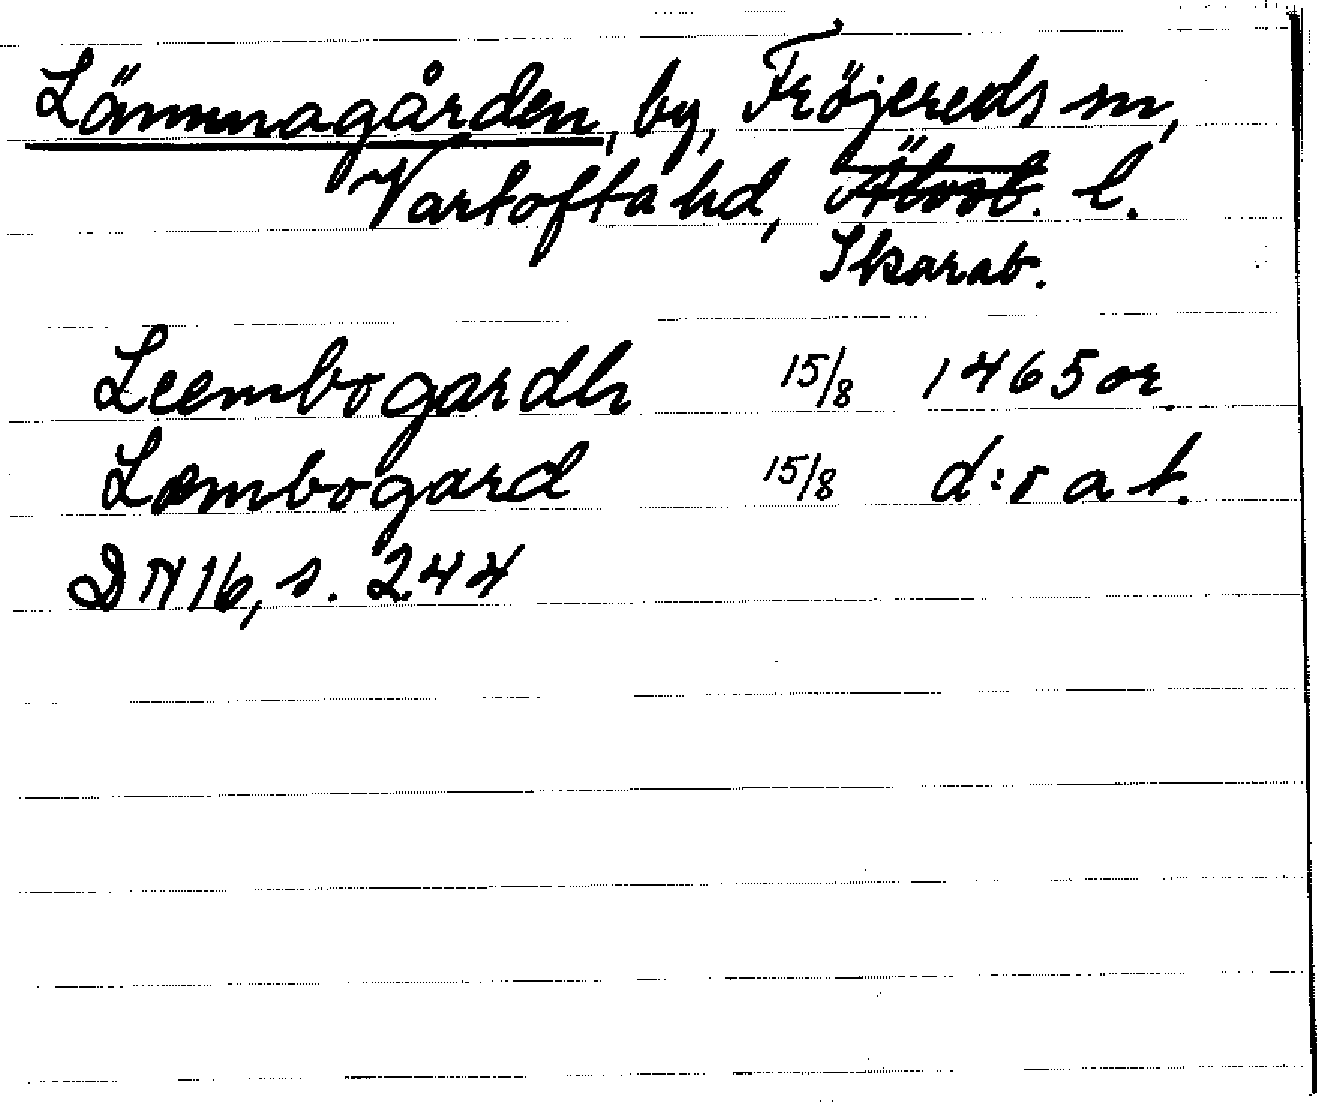 Lämmagården, by, Fröjereds sn,
Vartofta hd, Älvsb. l.
Skarab.
Leembogardh 15/8 1465 or.
Læmbogard 15/8 d:o a t.
DN 16, s. 244